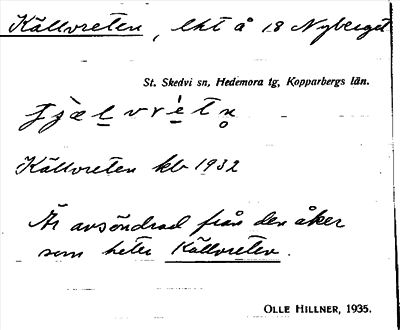 Källvreten, lht å 18 Nyberget
St. Skedvi sn, Hedemora tg, Kopparbergs län.
Källvreten klv 1932
Är avsöndrad från den åker
som heter Källvreten.
OLLE HILLNER, 1935.